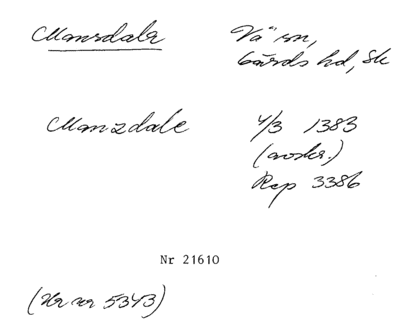 Mansdala Vä sn,
Gärds hd, Sk
Manzdale 4/3 1383
(avskr.)
Rep 3386
Nr 21610
(Nr 5343)